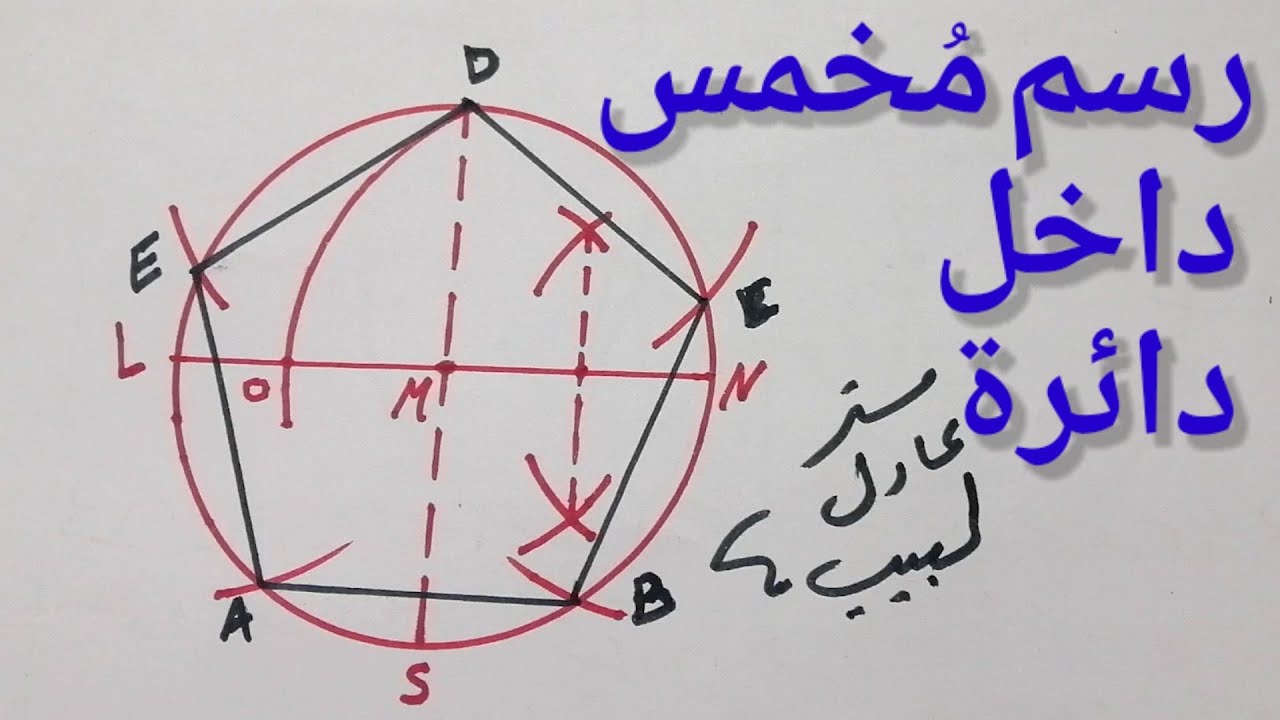 رسم مُخمس
داخل
دائرة
D
E
E
L
O
M
N
مستر
عادل
لبيب
A
B
S